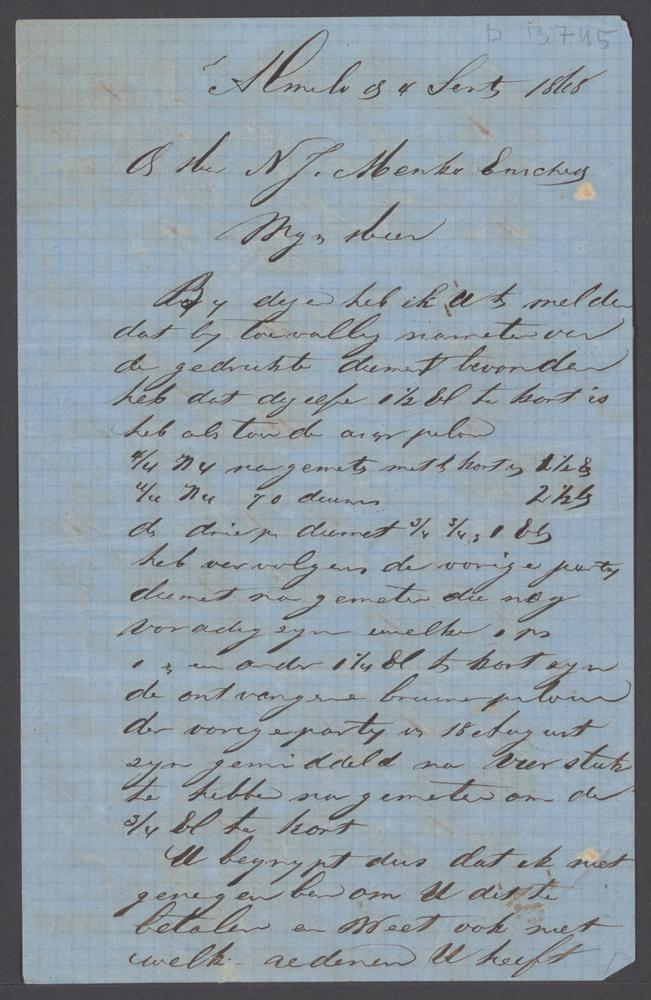 D B745
Almelo d 4 Sept 1868
d Heer N J. Menko Enschede
Myn Heer
By deze heb ik U te melden
dat by toevallig nameten van
de gedrukte diemet bevonden
heb dat dezelfe 1 1/2 El te kort is
heb als toen de
4/4 N 4 na gemeten te kort 1 1/2 El
4/4 70 2 1/2 El
de drie diemet 3/4 3/4
heb vervolgens de vorige party
diemet na gemeten die nog
voradig zyn welke
en ander 1 1/4 El te kort zyn
de ontvangene bruine
der vorige party van 18 August
zyn gemiddeld na vier stuk
te hebben na gemeten om de
3/4 El te kort
U begrypt dus dat ik niet
genegen ben om U dit te
betalen en Weet ook niet
welk redenen U heeft